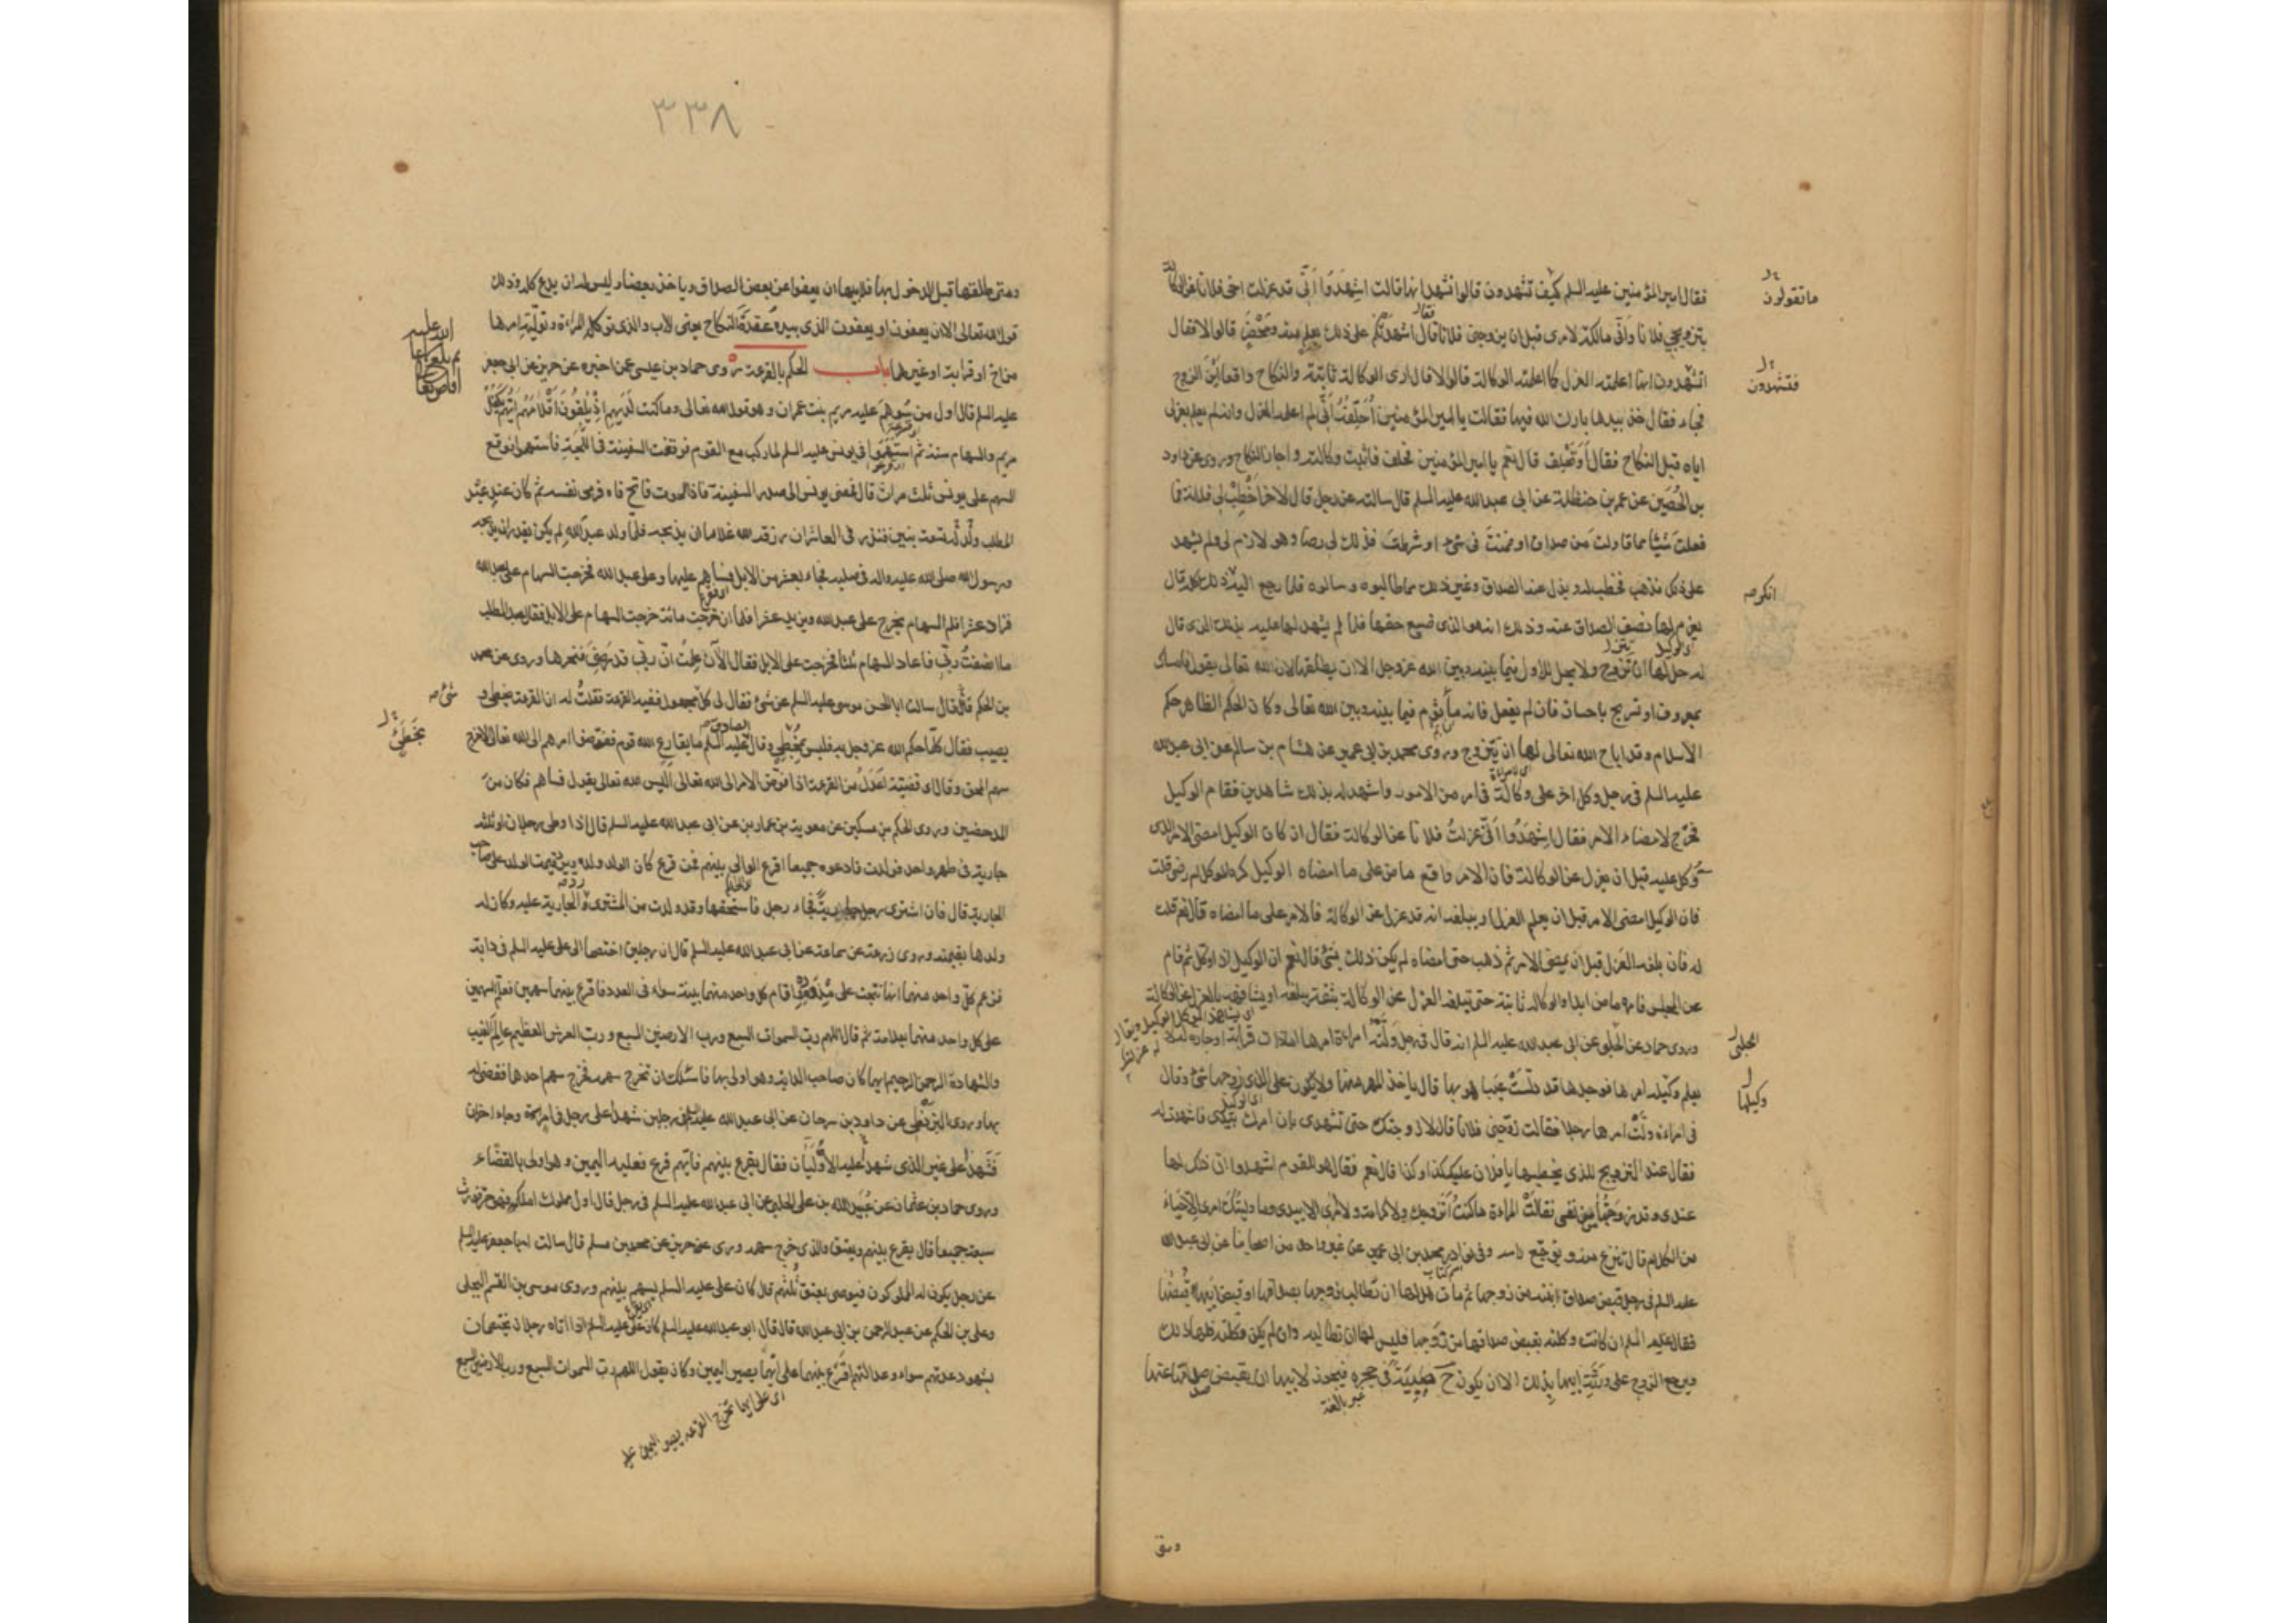 فقال امير المؤمنين عليه السلم كيف تشهدون قالوا نشهد انها قالت اشهدوا انى قد عزلت اخى فلانا عن الوكالة
بتزويجى فلانا وانى مالكة لامرى قبل ان يزوجنى فلانا فقال اشهدتكم على ذلك بعلم منه ومحضر قالوا لا فقال
اتشهدون انها اعلمته العزل كما اعلمته الوكالة قالوا لا قال ارى الوكالة ثابتة والنكاح واقعا اين الزوج
فجاء فقال خذ بيدها بارك الله لك فيها فقالت يا امير المؤمنين احلفه انى لم اعلمه العزل وانه لم يعلم بعزلى
اياه قبل النكاح فقال او تحلف قال نعم يا امير المؤمنين فحلف فاثبت وكالته واجاز النكاح وروى عن داود
بن الحصين عن عمر بن حنظلة عن ابى عبد الله عليه السلم قال سالته عن رجل قال لاخر اخطب لى فلانة فما
فعلت شيئا مما قاولت من صداق او ضمنت من شئ او شرطت فذلك لى رضا وهو لازم لى ولم يشهد
على ذلك فذهب فخطب له وبذل عنه الصداق وغير ذلك مما طالبوه وسالوه فلما رجع اليه انكر ذلك كله قال
يغرم لها نصف الصداق عنه وذلك انه هو الذى ضيع حقها فلما لم يشهد لها عليه بذلك الذى قال
له حل لها ان تتزوج ولا يحل للاول فيما بينه وبين الله عز وجل الا ان يطلقها لان الله تعالى يقول فامساك
بمعروف او تسريح باحسان فان لم يفعل فانه ماثوم فيما بينه وبين الله تعالى وكان الحكم الظاهر حكم
الاسلام وقد اباح الله تعالى لها ان تتزوج وروى محمد بن ابى عمير عن هشام بن سالم عن ابى عبد الله
عليه السلم فى رجل وكل اخر على وكالة فى امر من الامور واشهد له بذلك شاهدين فقام الوكيل
فخرج لامضاء الامر فقال اشهدوا انى عزلت فلانا عن الوكالة فقال ان كان الوكيل امضى الامر الذى
وكل عليه قبل ان يعزل عن الوكالة فان الامر واقع ماض على ما امضاه الوكيل كره الموكل ام رضى قلت
فان الوكيل امضى الامر قبل ان يعلم العزل او يبلغه انه قد عزل عن الوكالة فالامر على ما امضاه قال نعم قلت
له فان بلغه العزل قبل ان يمضى الامر ثم ذهب حتى امضاه لم يكن ذلك بشئ قال نعم ان الوكيل اذا وكل ثم قام
عن المجلس فامره ماض ابدا والوكالة ثابتة حتى يبلغه العزل عن الوكالة بثقة يبلغه او يشافهه بالعزل عن الوكالة
وروى حماد عن الحلبى عن ابى عبد الله عليه السلم انه قال فى رجل ولته امراة امرها
فى امراة ولت امرها رجلا فقالت زوجنى فلانا قال لا زوجتك حتى تشهدى بان امرك بيدى فاشهدت له
فقال عند التزويج للذى يخطبها يا فلان عليك كذا وكذا قال نعم فقال هو للقوم اشهدوا ان ذلك لها
عندى وقد زوجتها من نفسى فقالت المراة ما كنت اتزوجك ولا كرامة ولا امرى الا بيدى وما وليتك امرى الا حياء
من الكلام قال تنزع منه ويوجع راسه وفى نوادر محمد بن ابى عمير عن غير واحد من اصحابنا عن ابى عبد الله
عليه السلم فى رجل قبض صداق ابنته من زوجها ثم مات هل لها ان تطالب زوجها بصداقها او قبض ابيها قبضها
فقال عليه السلم ان كانت وكلته بقبض صداقها من زوجها فليس لها ان تطالبه وان لم يكن وكلته فلها ذلك
ويرجع الزوج على ورثة ابيها بذلك الا ان يكون ح صبية فى حجره فيجوز لابيها ان يقبض صداقها عنها
ما تقولون
فتشهدون
انكر
الحلبى
وكيلها
غير بالغة
ومتى
٣٣٨
ومتى طلقها قبل الدخول بها فلابيها ان يعفوا عن بعض الصداق وياخذ بعضا وليس له ان يدع كله وذلك
قول الله تعالى الا ان يعفون او يعفوا الذى بيده عقدة النكاح يعنى الاب والذى توكله المراة وتوليه امرها
من اخ او قرابة او غيرهما باب الحكم بالقرعة روى حماد بن عيسى عمن اخبره عن حريز عن ابى جعفر
عليه السلم قال اول من سوهم عليه مريم بنت عمران وهو قول الله تعالى وما كنت لديهم اذ يلقون اقلامهم ايهم يكفل
مريم والسهام ستة ثم استهموا فى يونس عليه السلم لما ركب مع القوم فوقفت السفينة فى اللجة فاستهموا فوقع
السهم على يونس ثلث مرات قال فمضى يونس الى صدر السفينة فاذا الحوت فاتح فاه فرمى نفسه ثم كان عند عبد
المطلب ولد له تسعة بنين فنذر فى العاشر ان رزقه الله غلاما ان يذبحه فلما ولد عبد الله لم يكن يقدر ان يذبحه
ورسول الله صلى الله عليه واله فى صلبه فجاء بعشر من الابل فساهم عليها وعلى عبد الله فخرجت السهام على عبد الله
فزاد عشرا فلم السهام يخرج على عبد الله ويزيد عشرا فلما ان خرجت مائة خرجت السهام على الابل فقال عبد المطلب
ما انصفت ربى فاعاد السهام ثلثا فخرجت على الابل فقال الان علمت ان ربى قد رضى فنحرها وروى عن محمد
بن الحكم قال سالت ابا الحسن موسى عليه السلم عن شئ فقال لى كل مجهول ففيه القرعة فقلت له ان القرعة تخطى و
يصيب فقال كلما حكم الله عز وجل به فليس بمخطى وقال الصادق عليه السلم ما يقارع الله قوم ففوضوا امرهم الى الله تعالى الا خرج
سهم المحق وقال اى قضية اعدل من القرعة اذا فوض الامر الى الله تعالى اليس الله تعالى يقول فساهم فكان من
المدحضين وروى الحكم بن مسكين عن معوية بن عمار عن ابى عبد الله عليه السلم قال اذا وطى رجلان او ثلثة
جارية فى طهر واحد فولدت فادعوه جميعا اقرع الوالى بينهم فمن قرع كان الولد ولده ويرد قيمة الولد على صاحب
الجارية قال فان اشترى رجل جارية فجاء رجل فاستحقها وقد ولدت من المشترى رد الجارية عليه وكان له
ولدها بقيمته وروى زرعة عن سماعة عن ابى عبد الله عليه السلم قال ان رجلين اختصما الى على عليه السلم فى دابة
فزعم كل واحد منهما انها نتجت على مذوده واقام كل واحد منهما بينة سواء فى العدد فاقرع بينهما سهمين فعلم السهمين
على كل واحد منهما بعلامة ثم قال اللهم رب السموات السبع ورب الارضين السبع ورب العرش العظيم عالم الغيب
والشهادة الرحمن الرحيم ايهما كان صاحب الدابة وهو اولى بها فاسئلك ان تخرج سهمه فخرج سهم احدهما فقضى له
بها وروى البزنطى عن داود بن سرحان عن ابى عبد الله عليه السلم فى رجلين شهدا على رجل فى امر وجاء اخران
فشهدا على غير الذى شهد عليه الاولان فقال يقرع بينهم فايهم قرع فعليه اليمين وهو اولى بالقضاء
وروى حماد بن عثمان عن عبيد الله بن على الحلبى عن ابى عبد الله عليه السلم فى رجل قال اول مملوك املكه فهو حر فورث
سبعة جميعا قال يقرع بينهم ويعتق الذى خرج سهمه وروى عن حريز عن محمد بن مسلم قال سالت ابا جعفر عليه السلم
عن رجل يكون له المملوكون فيوصى بعتق ثلثهم قال كان على عليه السلم يسهم بينهم وروى موسى بن القسم البجلى
وعلى بن الحكم عن عبد الرحمن بن ابى عبد الله قال قال ابو عبد الله عليه السلم كان على عليه السلم اذا اتاه رجلان يختصمان
بشهود عدتهم سواء وعدالتهم اقرع بينهما على ايهما يصير اليمين وكان يقول اللهم رب السموات السبع ورب الارضين السبع
شئ
اى على ايهما تخرج القرعه يصير اليمين عليه